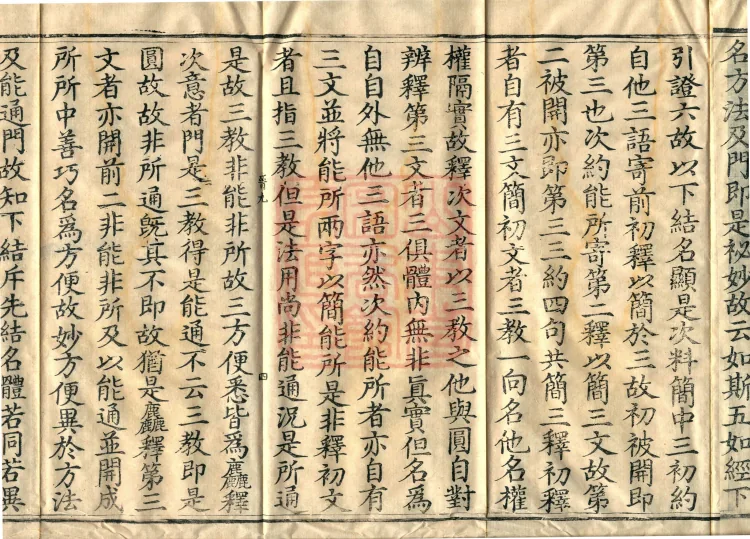 名方法及門即是祕妙故云如斯五如經下
引證六故以下結名顯是次料簡中三初約
自他三語寄前初釋以簡於三故初被開即
第三也次約能所寄第二釋以簡三文故第
二被開亦即第三三約四句共簡三釋初釋
者自有三文簡初文者三教一向名他名權
權隔實故釋次文者以三教之他與圓自對
辨釋第三文者三俱體內無非真實但名為
自自外無他三語亦然次約能所者亦自有
三文並將能所兩字以簡能所是非釋初文
者且指三教但是法用尚非能通況是所通
晉九
四
是故三教非能非所故三方便悉皆為麤釋
次意者門是三教得是能通不云三教即是
圓故故非所通旣真不即故猶是麤釋第三
文者亦開前二非能非所及以能通並開成
所所中善巧名為方便故妙方便異於方法
及能通門故知下結斥先結名體若同若異